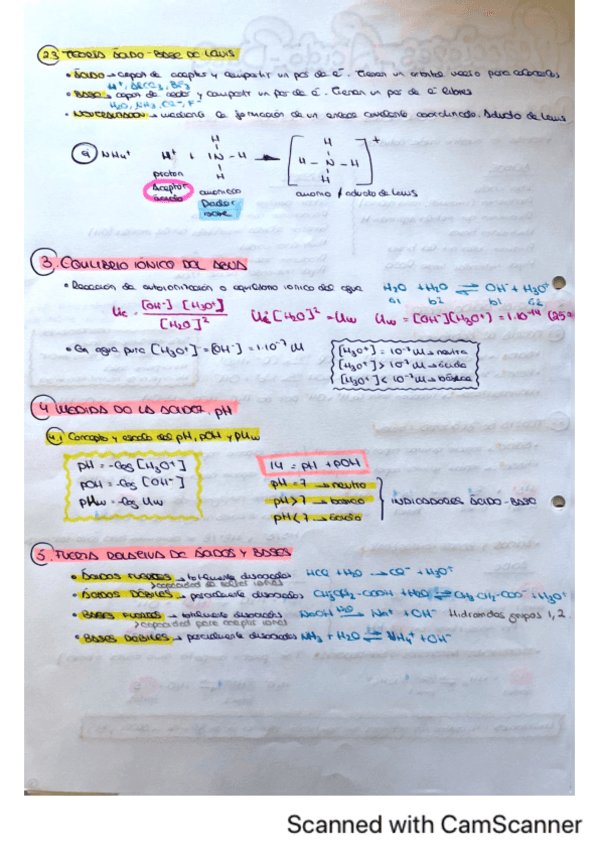 2.3 TEORÍA ÁCIDO-BASE DE LEWIS
• ÁCIDO → capaz de aceptar y compartir un par de e⁻. Tienen un orbital vacío para
H⁺, AlCl₃, BF₃
• BASE → capaz de ceder y compartir un par de e⁻. Tienen un par de e⁻ libres
H₂O, NH₃, Cl⁻, F⁻
• NEUTRALIZACIÓN → mediante la formación de un enlace covalente coordinado. Aducto de Lewis
Ej NH₄⁺
H⁺ + H
IN - H → [H - N - H]⁺
H
protón
Aceptor
ácido
amoniaco
Dador
base
amonio / aducto de Lewis
3. EQUILIBRIO IÓNICO DEL AGUA
• Reacción de autoionización o equilibrio iónico del agua H₂O + H₂O ⇌ OH⁻ + H₃O⁺
a1 b2 b1 a2
Kc = [OH⁻] [H₃O⁺] / [H₂O]² Kc [H₂O]² = Kw Kw = [OH⁻][H₃O⁺] = 1.10⁻¹⁴ (25º
• En agua pura [H₃O⁺] = [OH⁻] = 1.10⁻⁷ M
[H₃O⁺] = 10⁻⁷ M → neutra
[H₃O⁺] > 10⁻⁷ M → ácida
[H₃O⁺] < 10⁻⁷ M → básica
4. MEDIDA DE LA ACIDEZ, pH
4.1 Concepto y escala del pH, pOH y pKw
pH = -log [H₃O⁺]
pOH = -log [OH⁻]
pKw = -log Kw
14 = pH + pOH
pH = 7 → neutro
pH > 7 → básico
pH < 7 → ácido
INDICADORES ÁCIDO-BASE
5. FUERZA RELATIVA DE ÁCIDOS Y BASES
• ÁCIDOS FUERTES → totalmente disociados HCl + H₂O → Cl⁻ + H₃O⁺
> capacidad de ceder iones
• ÁCIDOS DÉBILES → parcialmente disociados CH₃CH₂-COOH + H₂O ⇌ CH₃CH₂-COO⁻ + H₃O⁺
• BASES FUERTES → totalmente disociadas NaOH H₂O → Na⁺ + OH⁻ Hidróxidos grupos 1, 2
> capacidad para aceptar iones
• BASES DÉBILES → parcialmente disociadas NH₃ + H₂O ⇌ NH₄⁺ + OH⁻
Scanned with CamScanner